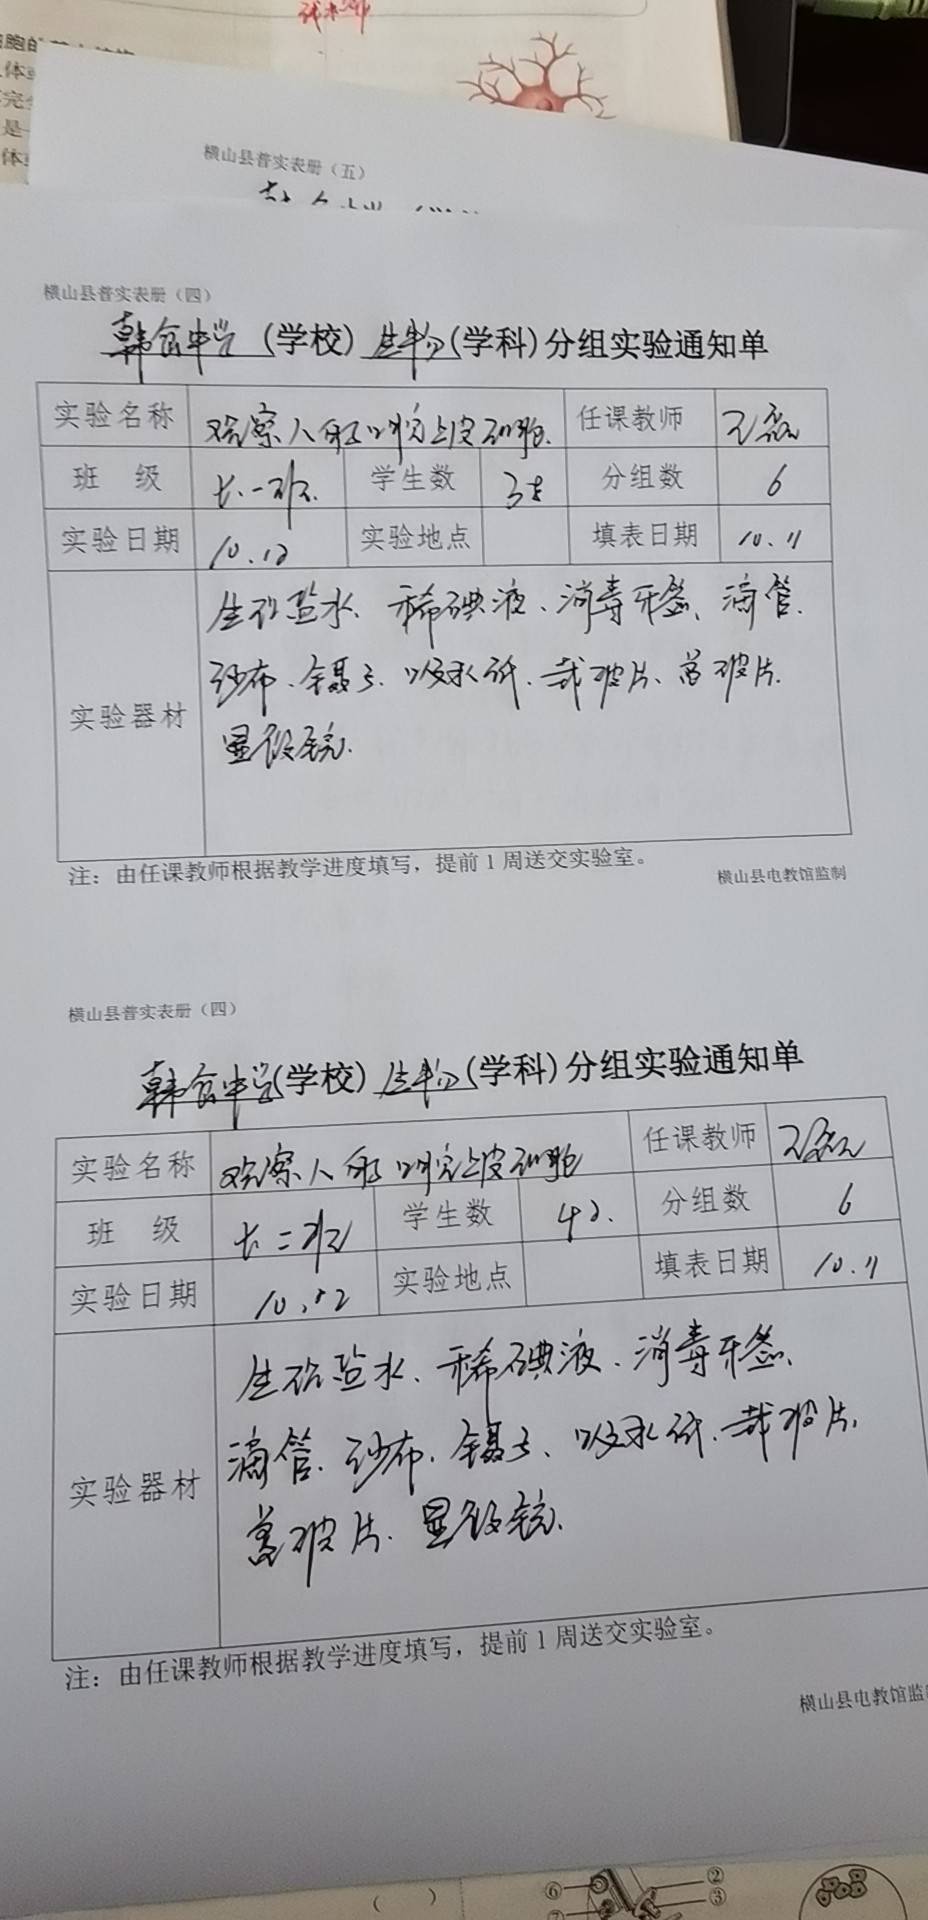 横山县普实表册（五）
横山县普实表册（四）
中学（学校）生物（学科）分组实验通知单
实验名称 观察人的口腔上皮细胞 任课教师
班 级 七.一班. 学生数 分组数 6
实验日期 10.12 实验地点 填表日期 10.11
实验器材 生理盐水、稀碘液、消毒牙签、滴管.
纱布、镊子、吸水纸、载玻片、盖玻片.
显微镜.
注：由任课教师根据教学进度填写，提前1周送交实验室。
横山县电教馆监制
横山县普实表册（四）
中学（学校）生物（学科）分组实验通知单
实验名称 观察人的口腔上皮细胞 任课教师
班 级 七.二班 学生数 42. 分组数 6
实验日期 10.12 实验地点 填表日期 10.11
实验器材 生理盐水、稀碘液、消毒牙签、
滴管、纱布、镊子、吸水纸、载玻片、
盖玻片、显微镜.
注：由任课教师根据教学进度填写，提前1周送交实验室。
横山县电教馆监
（ ） ⑥ ② ③